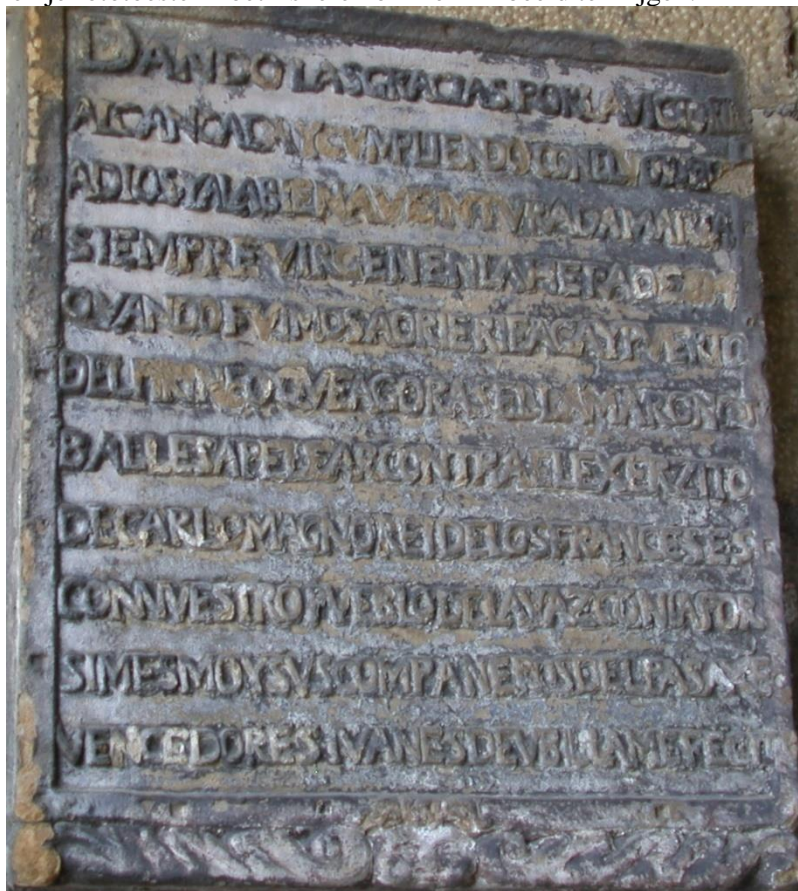 DANDO LAS GRACIAS POR LA VICTORIA
ALCANCADA Y CVMPLIENDO CON EL
ADIOS Y ALA BIENAVENTVRADA MARIA
SIEMPRE VIRGEN EN LA HERA DE
QVANDO FVIMOS A Y PVERTO
DEL PIRINEO QVE AGORA SE LLAMA
BALLES A PELEAR CONTRA EL EXERZITO
DE CARLO MAGNO REI DE LOS FRANCESES
CON NVESTRO PVEBLO DE LA VAZCONIA POR
SI MESMO Y SVS COMPANEROS DEL PASAXE
VENCEDORES. IVANES DE VBILLA ME FECIT